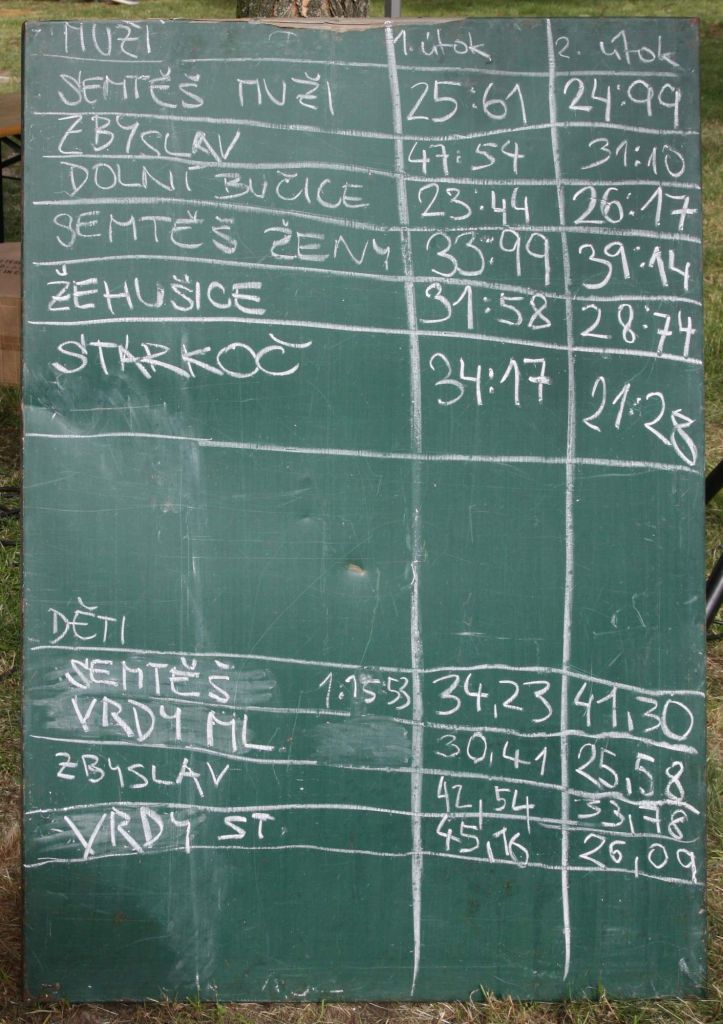 MUŽI 1. útok 2. útok
SEMTĚŠ MUŽI 25:61 24:99
ZBYSLAV 47:54 31:10
DOLNÍ BUČICE 23:44 26:17
SEMTĚŠ ŽENY 33:99 39:14
ŽEHUŠICE 31:58 28:74
STARKOČ 34:17 21:28
DĚTI
SEMTĚŠ 1:15:53 34,23 41,30
VRDY ML. 30,41 25,58
ZBYSLAV 42,54 33,78
VRDY ST. 45,16 26,09